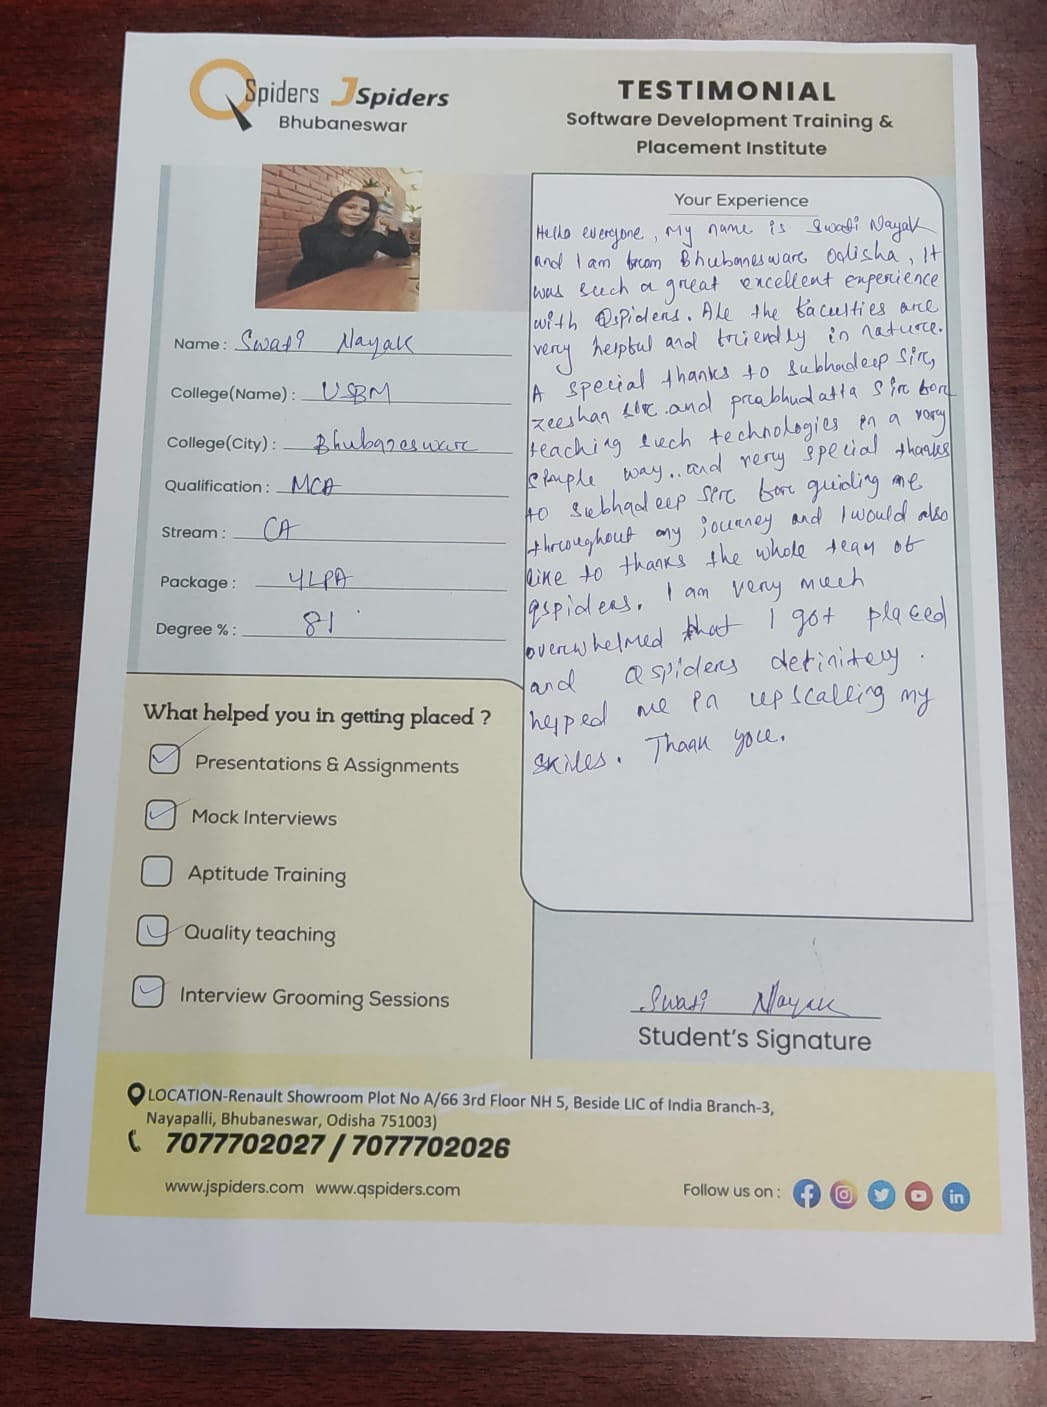 QSpiders JSpiders
Bhubaneswar
TESTIMONIAL
Software Development Training &
Placement Institute
Name : Swati Nayak
College(Name) : USBM
College(City) : Bhubaneswar
Qualification : MCA
Stream : CA
Package : 4LPA
Degree % : 81
Your Experience
Hello everyone, My name is Swati Nayak
and I am from Bhubaneswar Odisha, It
was such a great excellent experience
with Qspiders. All the faculties are
very helpful and friendly in nature.
A special thanks to Subhadeep Sir,
Zeeshan sir and prabhudatta Sir for
teaching such technologies in a very
simple way.. and very special thanks
to Subhadeep Sir for guiding me
throughout my journey and I would also
like to thanks the whole team of
qspiders. I am very much
overwhelmed that I got placed
and Qspiders definitely.
helped me in upscalling my
skills. Thank you.
What helped you in getting placed ?
Presentations & Assignments
Mock Interviews
Aptitude Training
Quality teaching
Interview Grooming Sessions
Swati Nayak
Student's Signature
LOCATION-Renault Showroom Plot No A/66 3rd Floor NH 5, Beside LIC of India Branch-3,
Nayapalli, Bhubaneswar, Odisha 751003)
7077702027 / 7077702026
www.jspiders.com www.qspiders.com
Follow us on :